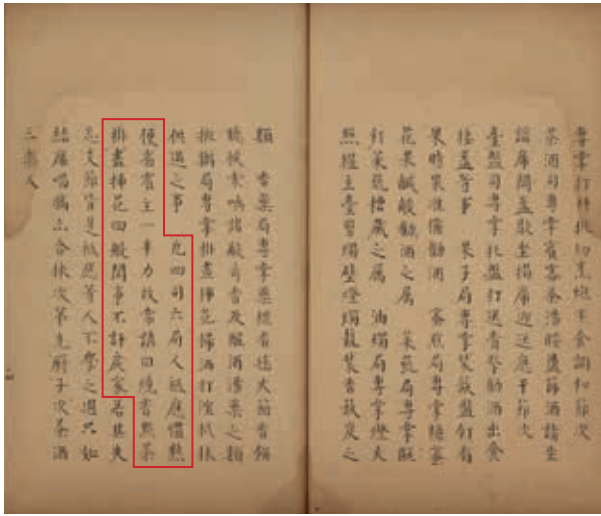 專掌打料批切烹炮下食調和節次
茶酒司專掌賓客茶湯暖盪篩酒請坐
諮席開盞歇坐揭席迎送應干節次
臺盤司專掌托盤打送賫擎勸酒出食
接盞等事　果子局專掌裝簇盤飣看
果時果准備勸酒　蜜煎局專掌糖蜜
花果鹹酸勸酒之属　菜蔬局專掌甌
飣菜蔬糟藏之属　油燭局專掌燈火
照耀立臺剪燭壁燈燭籠裝香簇炭之
類　香藥局專掌藥楪香毬火箱香餅
聽候索喚諸般奇香及醒酒湯藥之類
排辦局專掌掛畫插花掃洒打渲拭抹
供過之事　凡四司六局人祗應慣熟
便省賓主一半力故常諺曰燒香點茶
掛畫插花四般閒事不訐戾家若其失
忘支節皆是祗應等人不學之過只如
結席喝犒亦合依次第先厨子次茶酒
三樂人